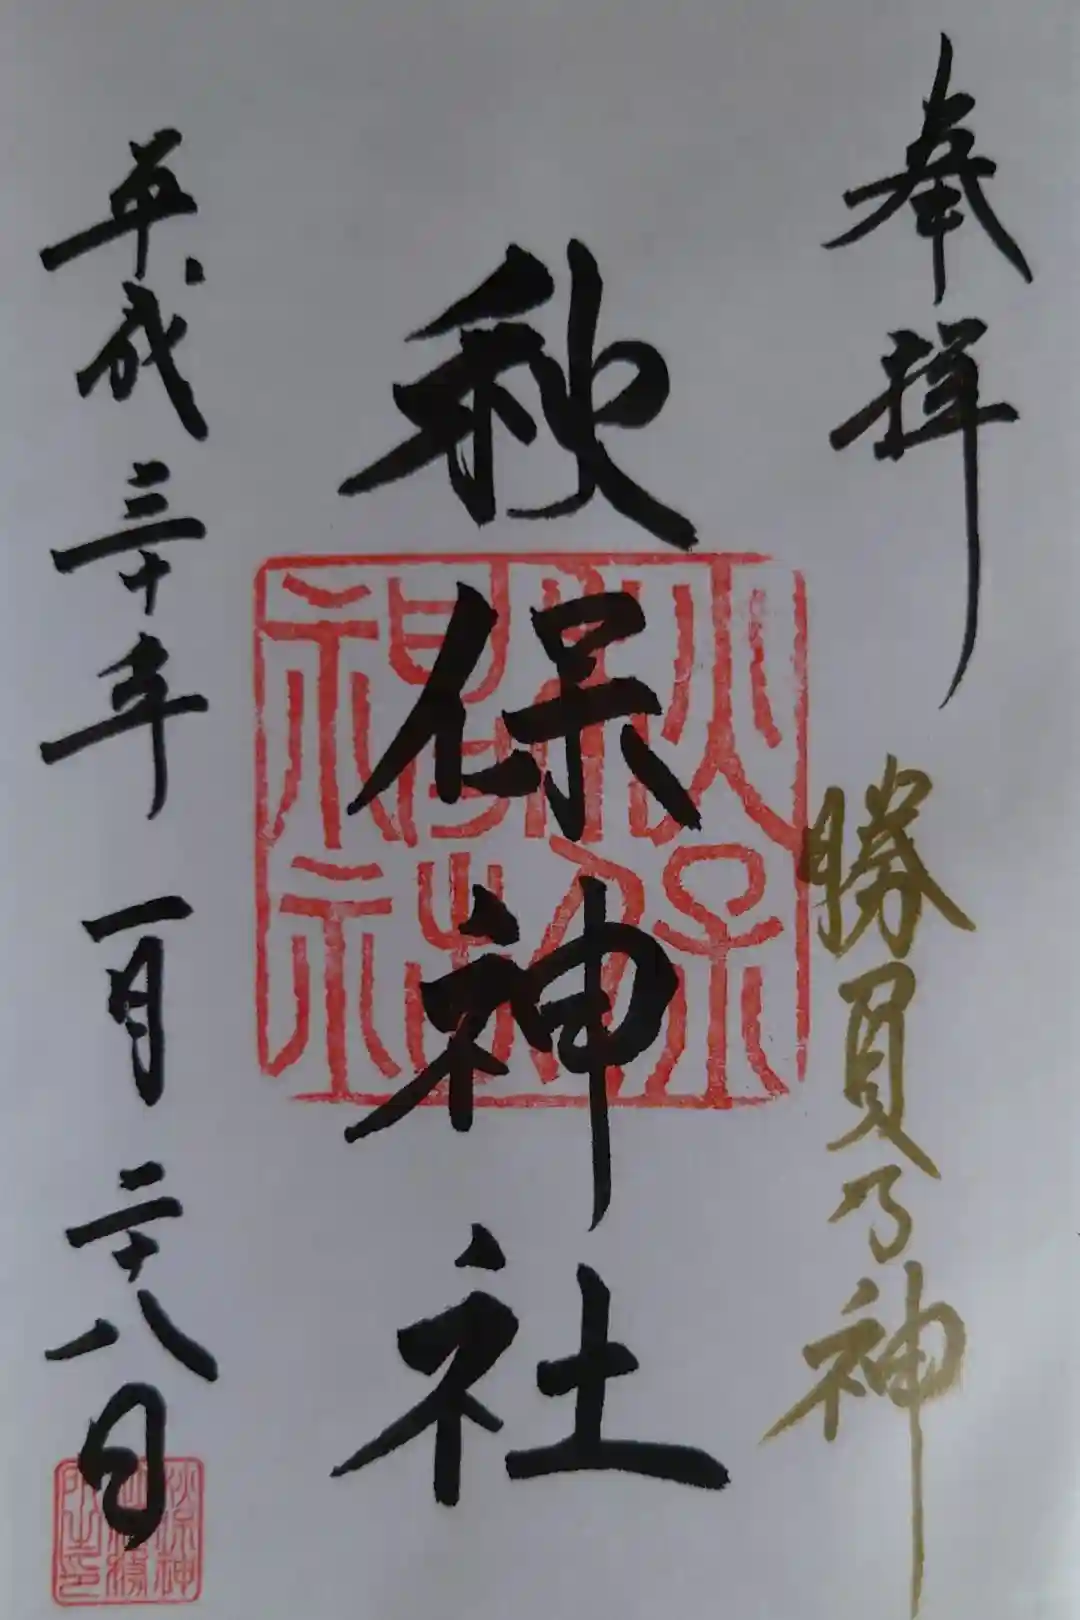 奉拝
勝負乃神
秋保神社
平成三十年一月二十八日